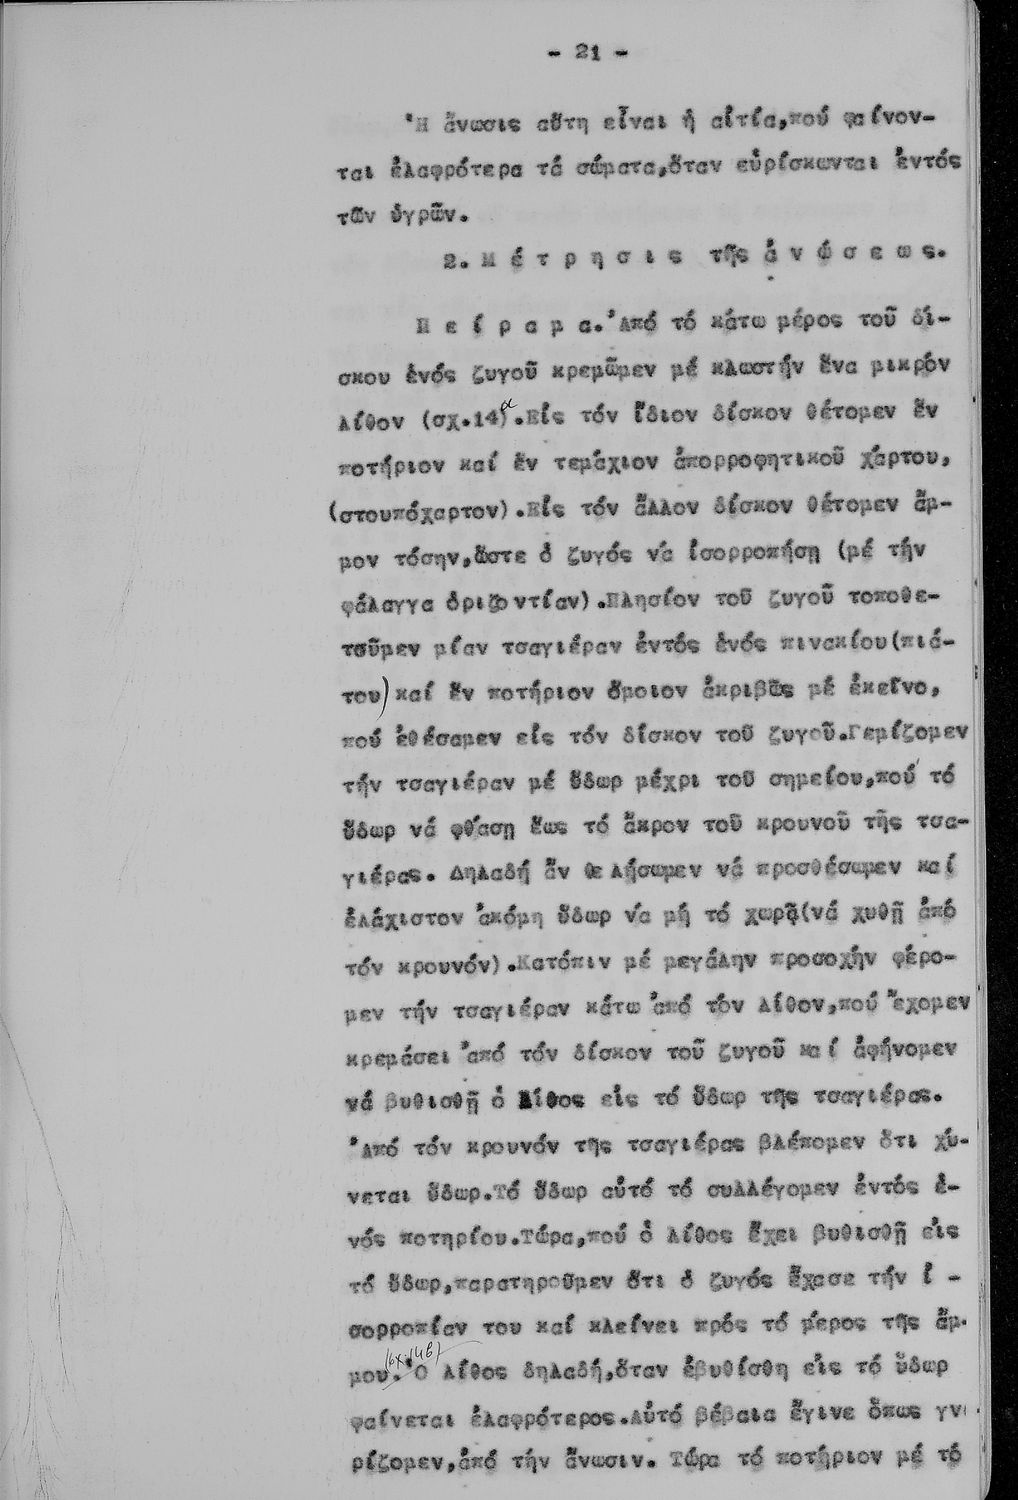 - 21 -
Ἡ ἄνωσις αὕτη εἶναι ἡ αἰτία,πού φαίνον-
ται ἐλαφρότερα τά σώματα,ὅταν εὑρίσκωνται ἐντός
τῶν ὑγρῶν.
2. Μ έ τ ρ η σ ι ς τῆς ἀ ν ώ σ ε ω ς.
Π ε ί ρ α μ α. Ἀπό τό κάτω μέρος τοῦ δί-
σκου ἑνός ζυγοῦ κρεμῶμεν μέ κλωστήν ἕνα μικρόν
λίθον (σχ.14α).Εἰς τόν ἴδιον δίσκον θέτομεν ἕν
ποτήριον καί ἕν τεμάχιον ἀπορροφητικοῦ χάρτου,
(στουπόχαρτον).Εἰς τόν ἄλλον δίσκον θέτομεν ἄμ-
μον τόσην,ὥστε ὁ ζυγός νά ἰσορροπήσῃ (μέ τήν
φάλαγγα ὁριζοντίαν).Πλησίον τοῦ ζυγοῦ τοποθε-
τοῦμεν μίαν τσαγιέραν ἐντός ἑνός πινακίου(πιά-
του) καί ἕν ποτήριον ὅμοιον ἀκριβῶς μέ ἐκεῖνο,
πού ἐθέσαμεν εἰς τόν δίσκον τοῦ ζυγοῦ.Γεμίζομεν
τήν τσαγιέραν μέ ὕδωρ μέχρι τοῦ σημείου,πού τό
ὕδωρ νά φθάσῃ ἕως τό ἄκρον τοῦ κρουνοῦ τῆς τσα-
γιέρας. Δηλαδή ἄν θελήσωμεν νά προσθέσωμεν καί
ἐλάχιστον ἀκόμη ὕδωρ νά μή τό χωρᾷ(νά χυθῇ ἀπό
τόν κρουνόν).Κατόπιν μέ μεγάλην προσοχήν φέρο-
μεν τήν τσαγιέραν κάτω ἀπό τόν λίθον,πού ἔχομεν
κρεμάσει ἀπό τόν δίσκον τοῦ ζυγοῦ καί ἀφήνομεν
νά βυθισθῇ ὁ λίθος εἰς τό ὕδωρ τῆς τσαγιέρας.
Ἀπό τόν κρουνόν τῆς τσαγιέρας βλέπομεν ὅτι χύ-
νεται ὕδωρ.Τό ὕδωρ αὐτό τό συλλέγομεν ἐντός ἑ-
νός ποτηρίου.Τώρα,πού ὁ λίθος ἔχει βυθισθῇ εἰς
τό ὕδωρ,παρατηροῦμεν ὅτι ὁ ζυγός ἔχασε τήν ἰ -
σορροπίαν του καί κλείνει πρός τό μέρος τῆς ἄμ-
μου.(σχ.14β) Ὁ λίθος δηλαδή,ὅταν ἐβυθίσθη εἰς τό ὕδωρ
φαίνεται ἐλαφρότερος.Αὐτό βέβαια ἔγινε ὅπως γν
ρίζομεν,ἀπό τήν ἄνωσιν. Τώρα τό ποτήριον μέ τό